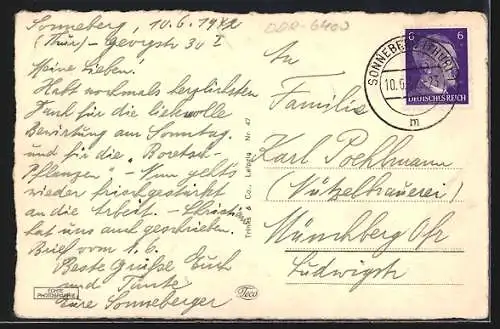 Sonneberg, 10.6.1942
(Thür) - Georgstr 30 I
Meine Lieben!
Habt nochmals herzlichsten
Dank für die liebevolle
Bewirtung am Sonntag.
und für die "Boretsch-
Pflanzen" - Nun geht's
wieder frisch gestärkt
an die Arbeit. -
hat uns auch geschrieben.
Brief vom 1.6.
Beste Grüße Euch
und Tante
Eure Sonneberger
ECHTE
PHOTOGRAPHIE
Trinks & Co., Leipzig Nr. 47
Teco
DDR-6400
SONNEBERG (THÜR)
10.6.
m
6 6
DEUTSCHES REICH
An
Familie
Karl Poehlmann
(Nützelbauerei)
Münchberg Ofr
Ludwigstr